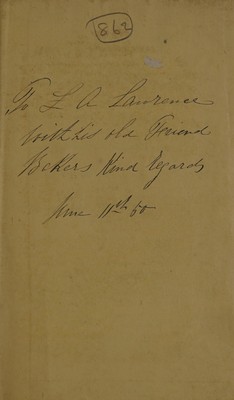 862
To L A Lawrence
with his old Friend
Bekers Kind regards
June 11th 50